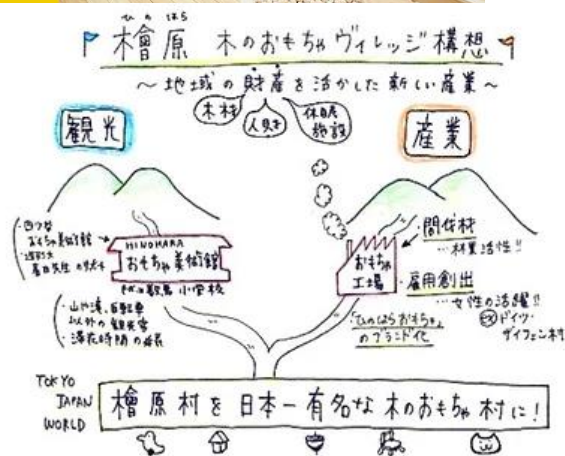 ひのはら
檜原 木のおもちゃヴィレッジ構想
〜地域の財産を活かした新しい産業〜
木材
人財
休眠
施設
観光
産業
・四ツ谷
おもちゃ美術館
のサポート
HINOHARA
おもちゃ美術館
小学校
・山や滝、自転車
以外の観光客
・滞在時間の延長
おもちゃ
工場
間伐材
…林業活性!!
雇用創出
…女性の活躍!!
ex ドイツ・
ザイフェン村
「ひのはらおもちゃ」
のブランド化
TOKYO
JAPAN
WORLD
檜原村を日本一有名な木のおもちゃ村に!